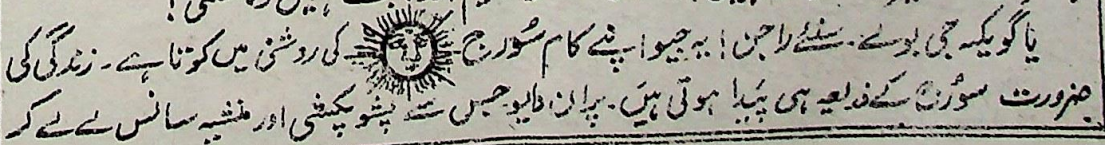 یاگویکہ جی بولے۔ سنئے راجن! یہ جیو اپنے کام سُورج کی روشنی میں کرتا ہے۔ زندگی کی
ضرورت سورج کے ذریعہ ہی پَیدا ہوتی ہیں۔ پران وایو جس سے پشو پکشی اور منشیہ سانس لے لے کر